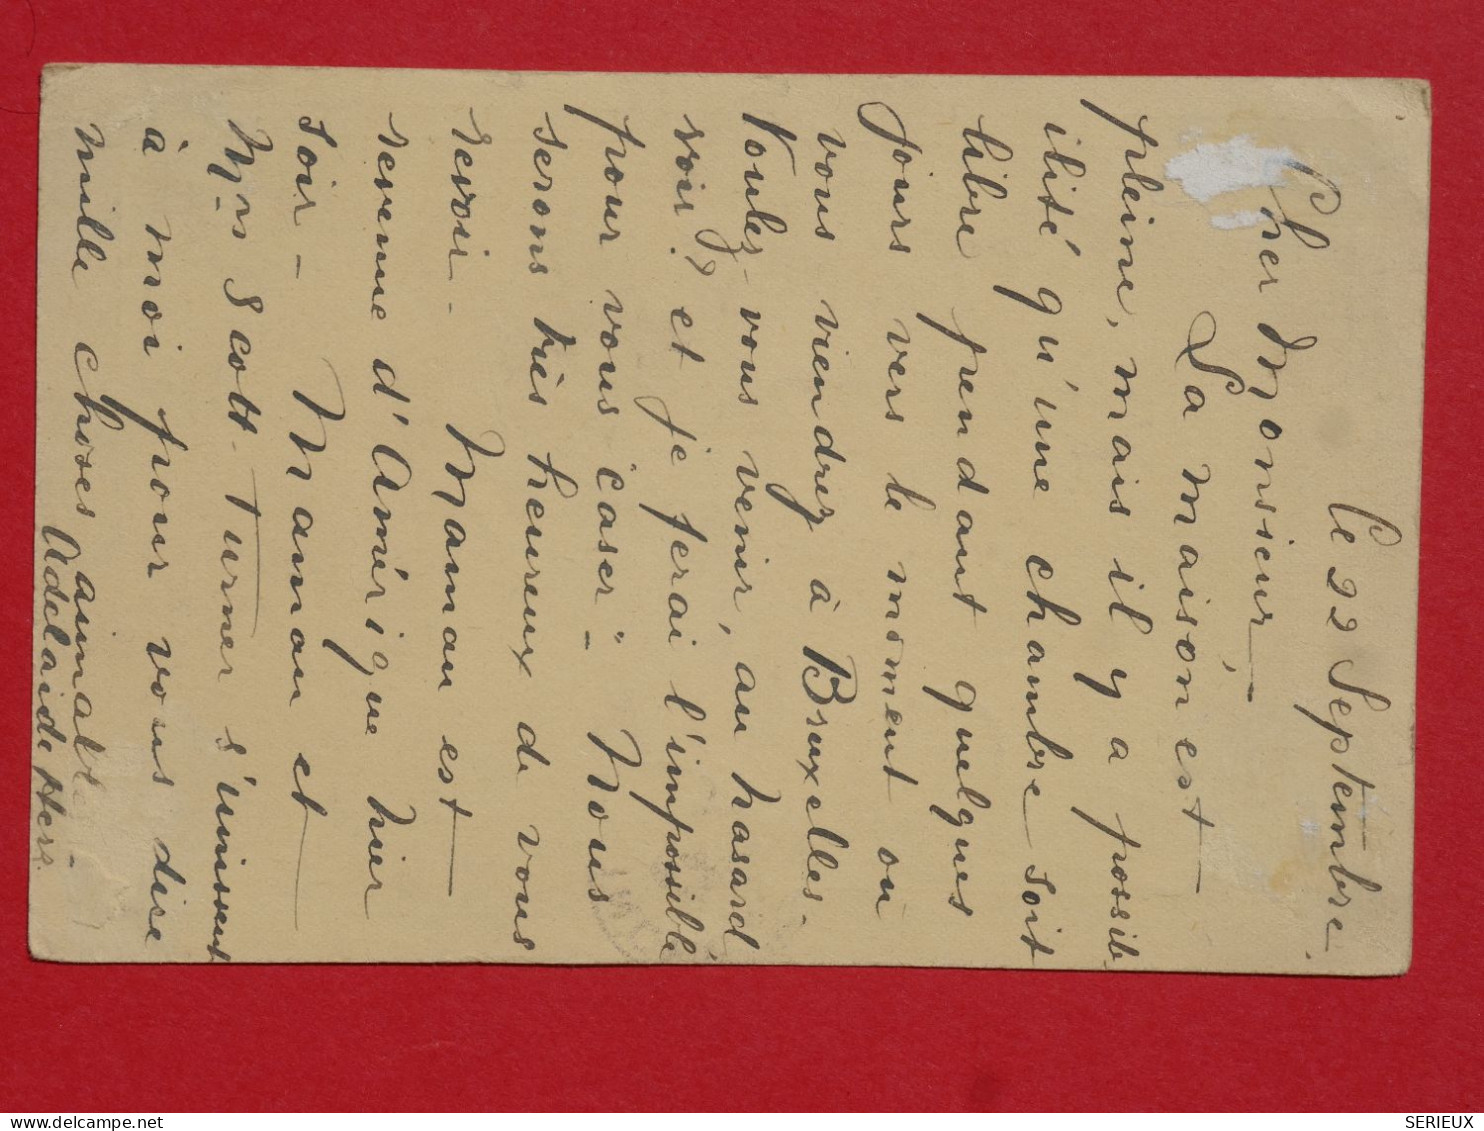 le 22 Septembre.
Cher Monsieur,
La maison est
pleine, mais il y a possib
ilité qu'une chambre soit
libre pendant quelques
jours vers le moment où
vous viendrez à Bruxelles.
Voulez-vous venir, au hasard
voir? et je ferai l'impossible
pour vous "caser" - Nous
serons très heureux de vous
revoir - Maman est
revenue d'Amérique hier
soir - Maman et
Mrs Scott-Turner s'unissent
à moi pour vous dire
mille choses aimables -
Adelaide
delcampe.net
SERIEUX